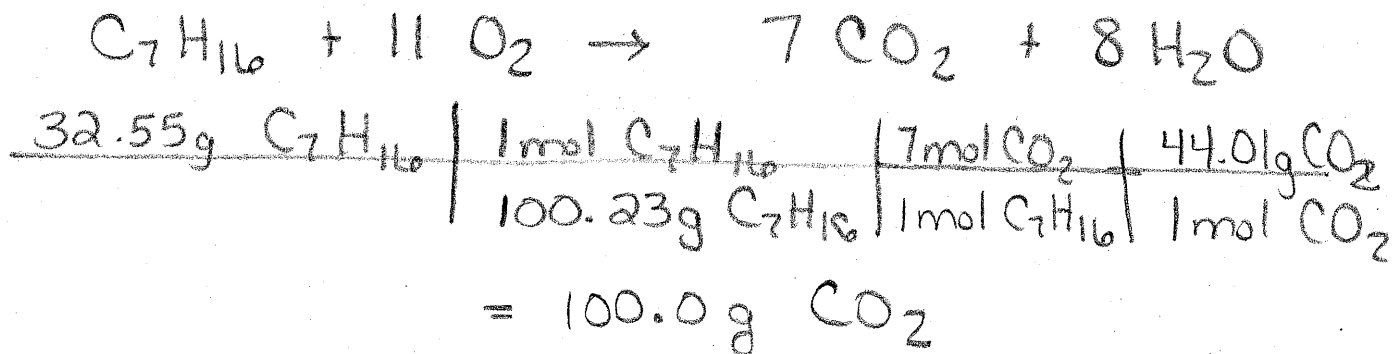 C₇H₁₆ + 11 O₂ → 7 CO₂ + 8 H₂O
32.55g C₇H₁₆ | 1mol C₇H₁₆ | 7mol CO₂ | 44.01g CO₂
100.23g C₇H₁₆ | 1mol C₇H₁₆ | 1mol CO₂
= 100.0g CO₂